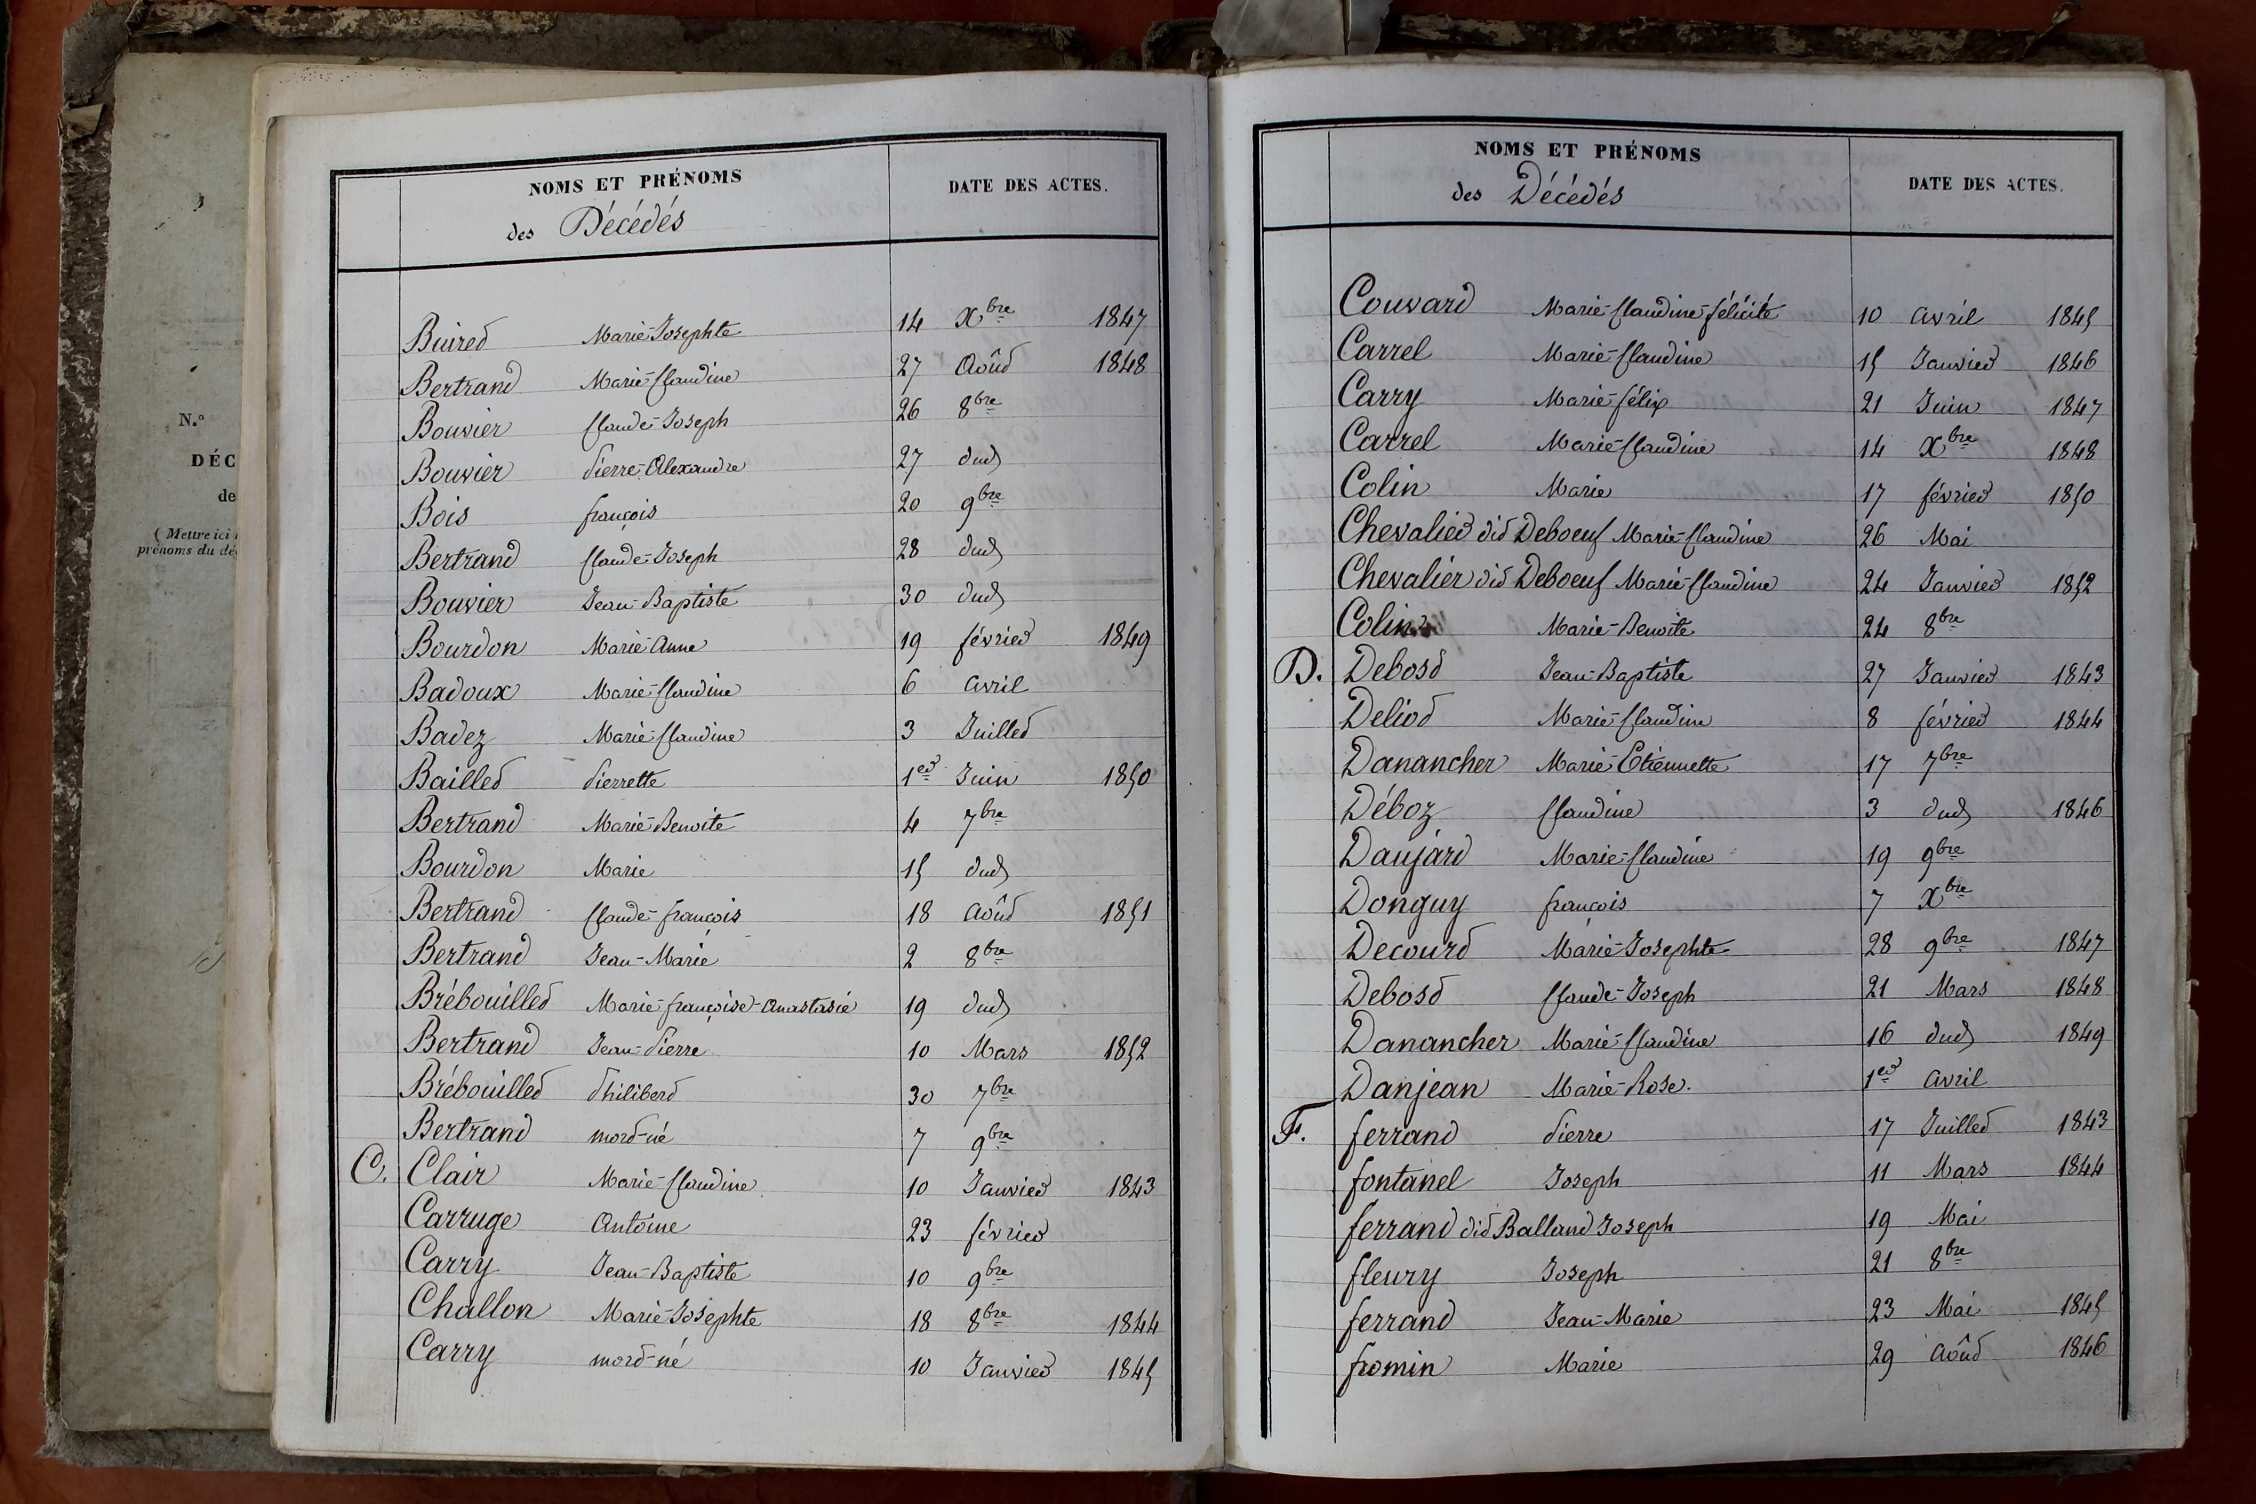 N.°
DÉC
de
( Mettre ici
prénoms du dé
NOMS ET PRÉNOMS
des Décédés
DATE DES ACTES.
Buired Marie-Josephte 14 Xbre 1847
Bertrand Marie-Claudine 27 Aoûd 1848
Bouvier Claude-Joseph 26 8bre
Bouvier Pierre-Alexandre 27 dud
Bois françois 20 9bre
Bertrand Claude-Joseph 28 dud
Bouvier Jean-Baptiste 30 dud
Bourdon Marie Anne 19 février 1849
Badoux Marie-Claudine 6 Avril
Badez Marie-Claudine 3 Juilled
Bailled Pierrette 1er Juin 1850
Bertrand Marie-Benoite 4 7bre
Bourdon Marie 15 dud
Bertrand Claude-françois 18 Aoûd 1851
Bertrand Jean-Marie 2 8bre
Brébouilled Marie-françoise-Anastasie 19 dud
Bertrand Jean-Pierre 10 Mars 1852
Brébouilled Philiberd 30 7bre
Bertrand mord-né 7 9bre
C. Clair Marie-Claudine 10 Janvier 1843
Carruge Antoine 23 février
Carry Jean-Baptiste 10 9bre
Challon Marie-Josephte 18 8bre 1844
Carry mord-né 10 Janvier 1845
NOMS ET PRÉNOMS
des Décédés
DATE DES ACTES.
Couvard Marie-Claudine-félicité 10 Avril 1845
Carrel Marie-Claudine 15 Janvier 1846
Carry Marie-félix 21 Juin 1847
Carrel Marie-Claudine 14 Xbre 1848
Colin Marie 17 février 1850
Chevalier did Deboeuf Marie-Claudine 26 Mai
Chevalier did Deboeuf Marie-Claudine 24 Janvier 1852
Colin Marie-Benoite 24 8bre
D. Debosd Jean-Baptiste 27 Janvier 1843
Deliod Marie-Claudine 8 février 1844
Danancher Marie-Etiennette 17 7bre
Déboz Claudine 3 dud 1846
Daujard Marie-Claudine 19 9bre
Donguy françois 7 Xbre
Decourd Marie-Josephte 28 9bre 1847
Debosd Claude-Joseph 21 Mars 1848
Danancher Marie-Claudine 16 dud 1849
Danjean Marie-Rose. 1er Avril
F. ferrand Pierre 17 Juilled 1843
fontanel Joseph 11 Mars 1844
ferrand did Balland Joseph 19 Mai
fleury Joseph 21 8bre
ferrand Jean-Marie 23 Mai 1845
fromin Marie 29 Aoûd 1846